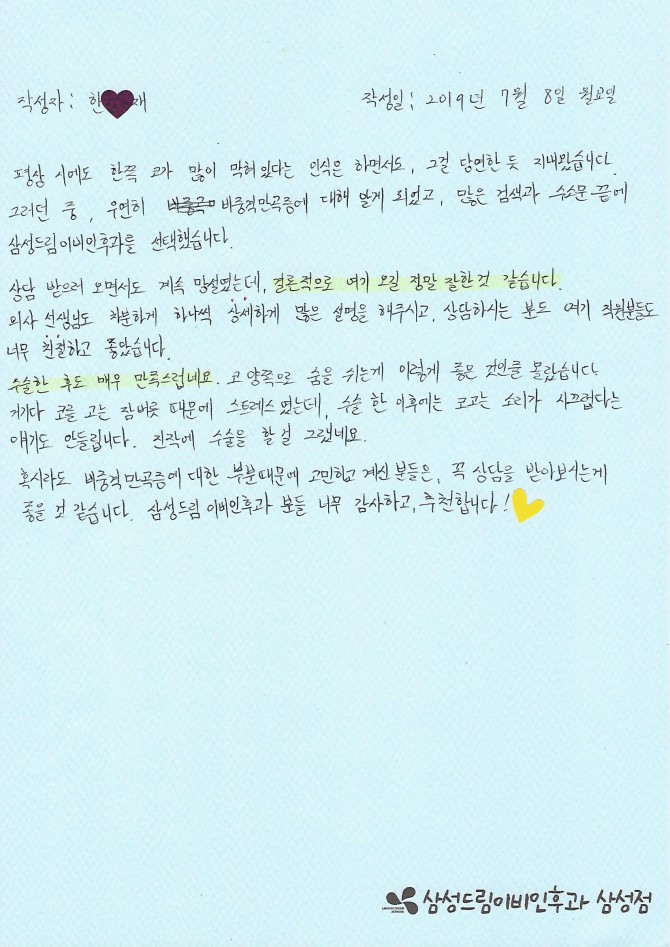 작성자 : 한♥재 작성일 : 2019년 7월 8일 월요일
평상 시에도 한쪽 코가 많이 막혀 있다는 인식은 하면서도, 그걸 당연한 듯 지내왔습니다.
그러던 중, 우연히 비중격만곡증에 대해 알게 되었고, 많은 검색과 수소문 끝에
삼성드림이비인후과를 선택했습니다.
상담 받으러 오면서도 계속 망설였는데, 결론적으로 여기 오길 정말 잘한 것 같습니다.
의사 선생님도 차분하게 하나씩 상세하게 많은 설명을 해주시고, 상담하시는 분도 여기 직원분들도
너무 친절하고 좋았습니다.
수술한 후도 매우 만족스럽네요. 코 양쪽으로 숨을 쉬는게 이렇게 좋은 것인를 몰랐습니다.
거기다 코를 고는 잠버릇 때문에 스트레스였는데, 수술 한 이후에는 코고는 소리가 시끄럽다는
얘기도 안들립니다. 진작에 수술을 할 걸 그랬네요.
혹시라도 비중격만곡증에 대한 부분때문에 고민하고 계신 분들은, 꼭 상담을 받아보시는게
좋을 것 같습니다. 삼성드림이비인후과 분들 너무 감사하고, 추천합니다!
삼성드림이비인후과 삼성점